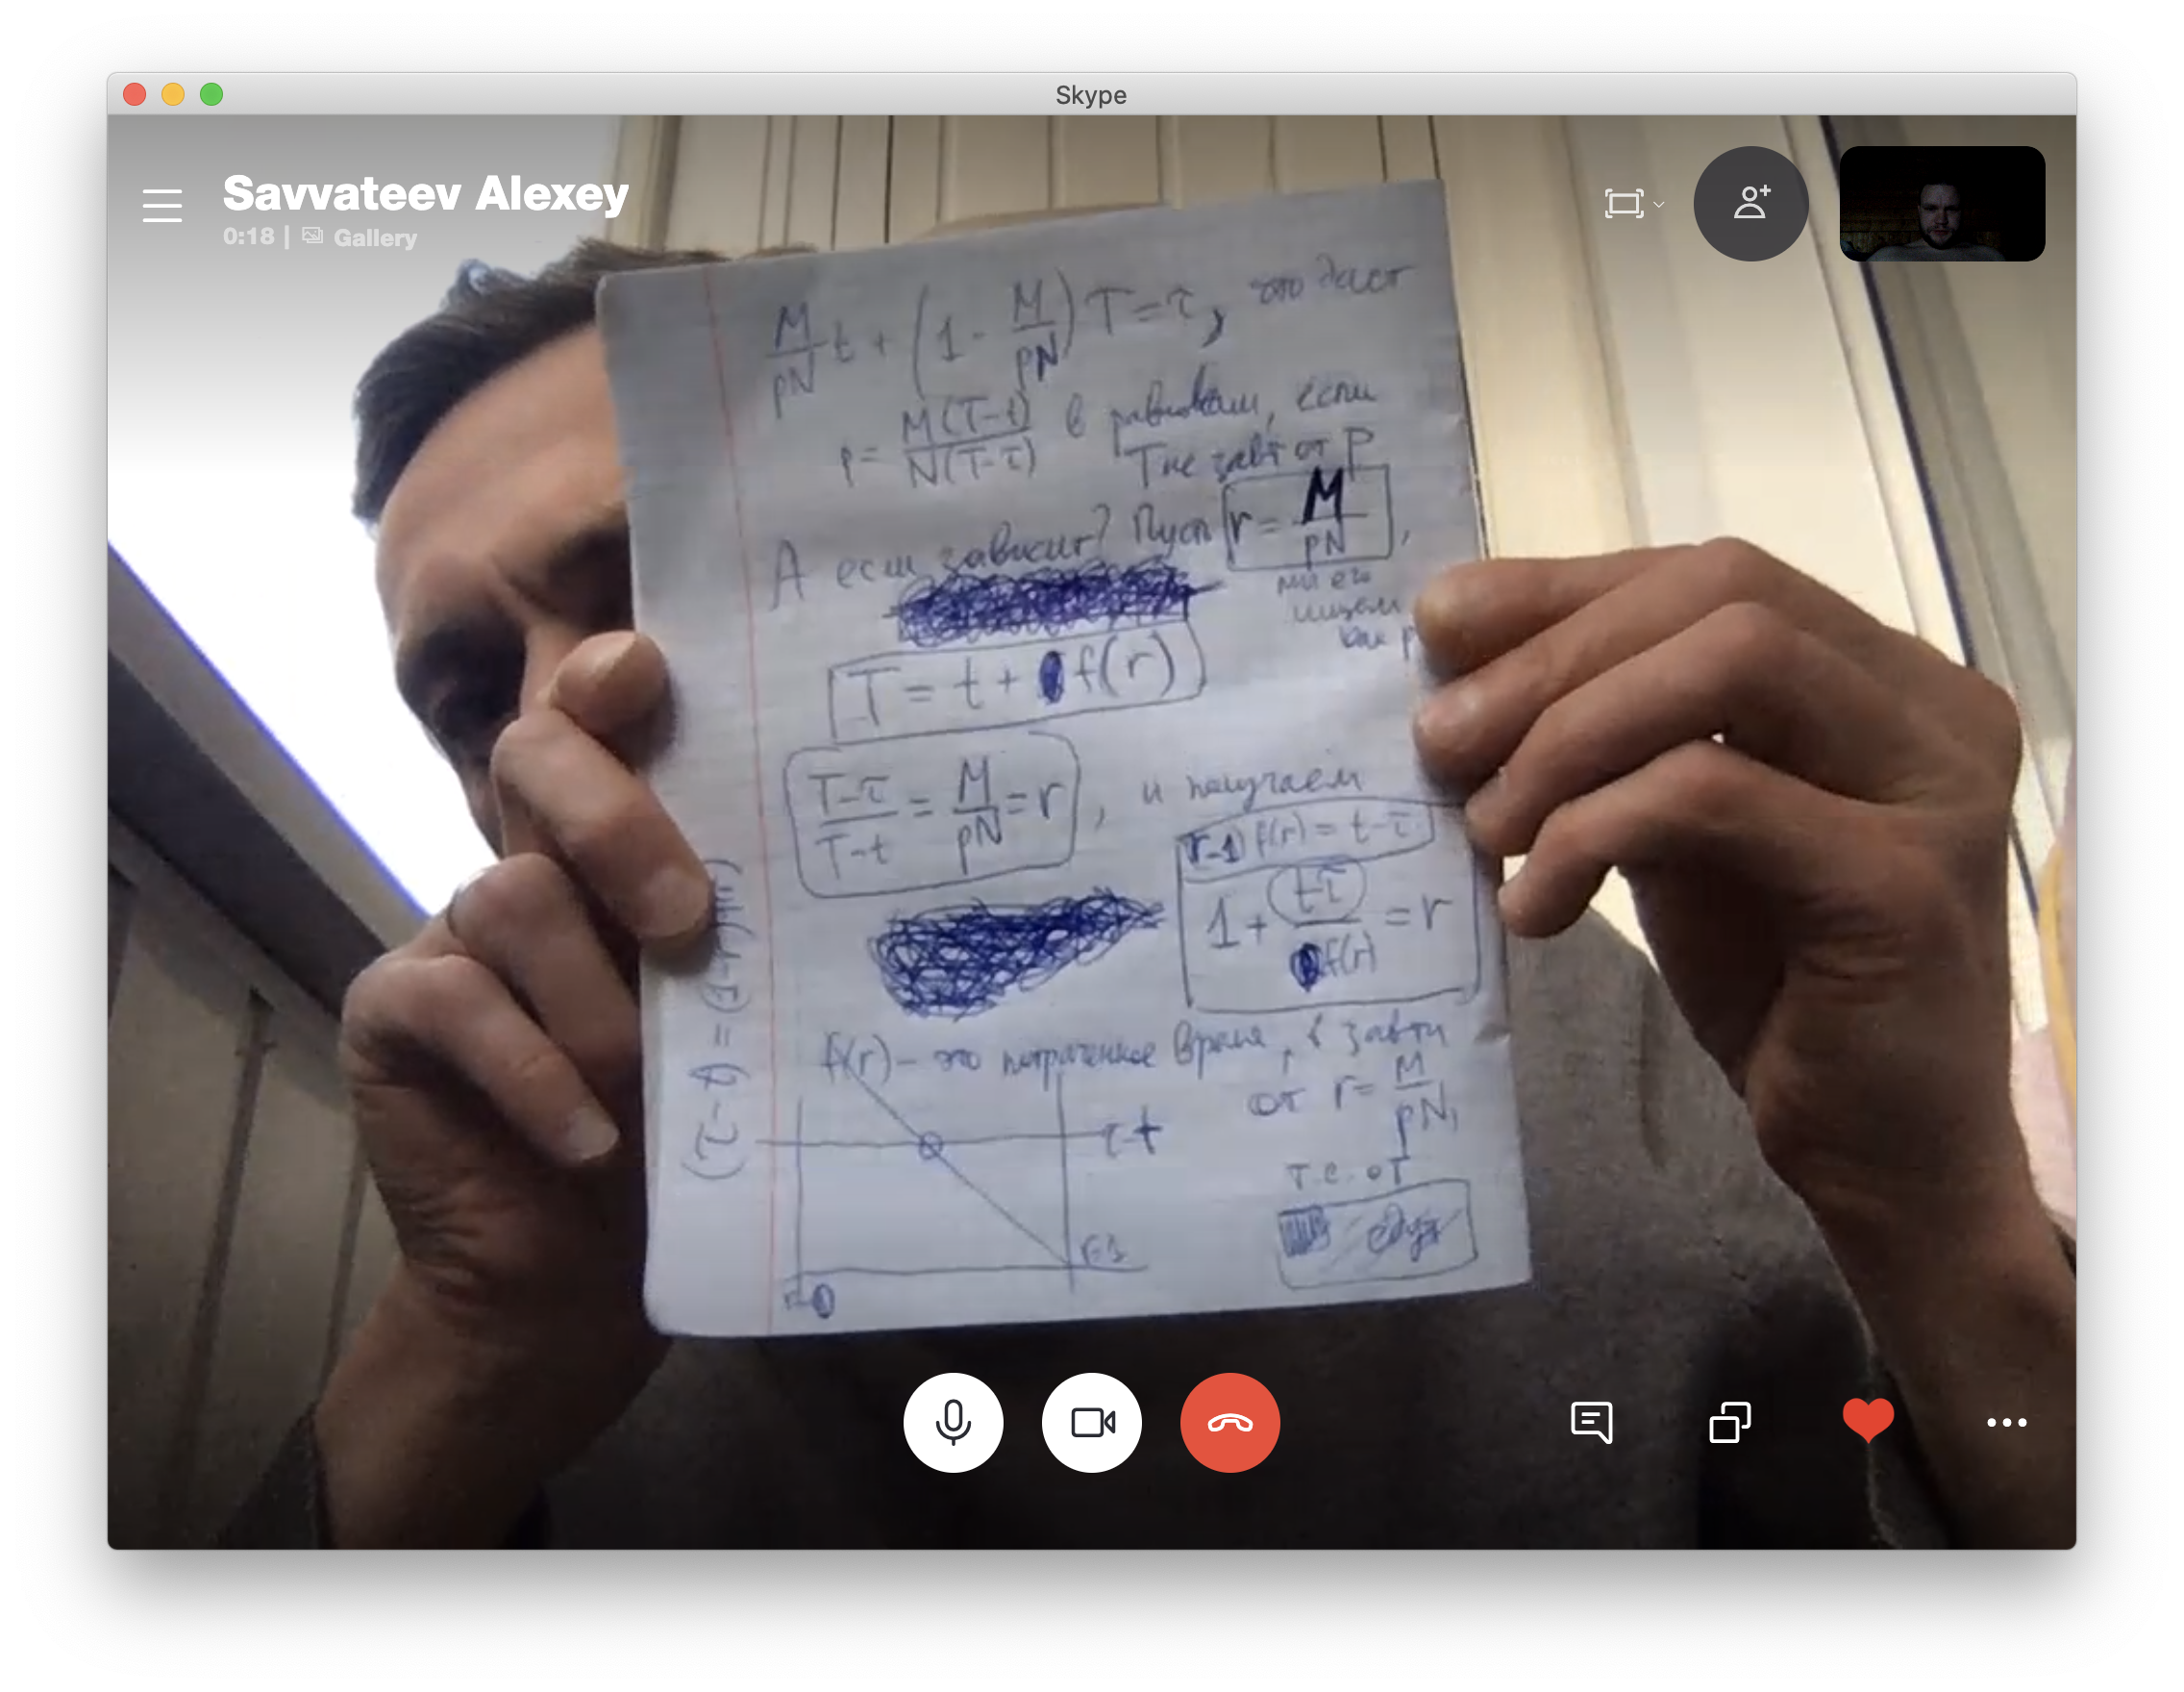 Skype
Savvateev Alexey
0:18 | Gallery
M/pN t + (1 - M/pN) T = τ, это даст
p = M(T-t)/N(T-τ) в равновесии, если
T не завт от P
А если зависит? Пусть r = M/pN,
мы его
ищем
как p
T = t + f(r)
T-τ/T-t = M/pN = r, и получаем
(r-1) f(r) = t-τ
1 + t-τ/f(r) = r
f(r) - это потраченное время, в завти
от r = M/pN,
т.е. от
τ-t
r=1
(τ-t) = (1-r) f(r)